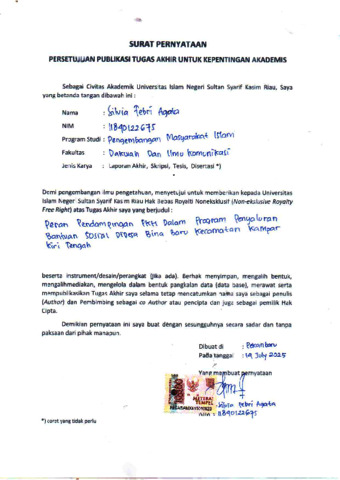 SURAT PERNYATAAN
PERSETUJUAN PUBLIKASI TUGAS AKHIR UNTUK KEPENTINGAN AKADEMIS
Sebagai Civitas Akademik Universitas Islam Negeri Sultan Syarif Kasim Riau, Saya
yang bertanda tangan dibawah ini :
Nama : Silvia Febri Agata
NIM : 11840122675
Program Studi : Pengembangan Masyarakat Islam
Fakultas : Dakwah Dan Ilmu Komunikasi
Jenis Karya : Laporan Akhir, Skripsi, Tesis, Disertasi *)
Demi pengembangan ilmu pengetahuan, menyetujui untuk memberikan kepada Universitas
Islam Negeri Sultan Syarif Kasim Riau Hak Bebas Royalti Noneksklusif (Non-ekslusive Royalty
Free Right) atas Tugas Akhir saya yang berjudul :
Peran Pendampingan PKH Dalam Program Penyaluran
Bantuan Sosial Di Desa Bina Baru Kecamatan Kampar
Kiri Tengah
beserta instrument/desain/perangkat (jika ada). Berhak menyimpan, mengalih bentuk,
mengalihmediakan, mengelola dalam bentuk pangkalan data (data base), merawat serta
mempublikasikan Tugas Akhir saya selama tetap mencatumkan nama saya sebagai penulis
(Author) dan Pembimbing sebagai co Author atau pencipta dan juga sebagai pemilik Hak
Cipta.
Demikian pernyataan ini saya buat dengan sesungguhnya secara sadar dan tanpa
paksaan dari pihak manapun.
Dibuat di : Pekanbaru
Pada tanggal : 14 July 2025
Yang membuat pernyataan
METERAI
TEMPEL
Silvia Febri Agata
NIM : 11840122675
*) coret yang tidak perlu